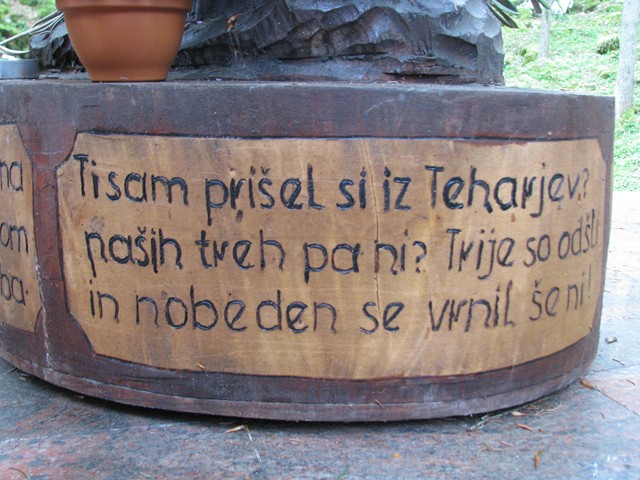 Ti sam prišel si iz Teharjev?
naših treh pa ni? Trije so odšli
in nobeden se vrnil še ni!
na
om
ba.